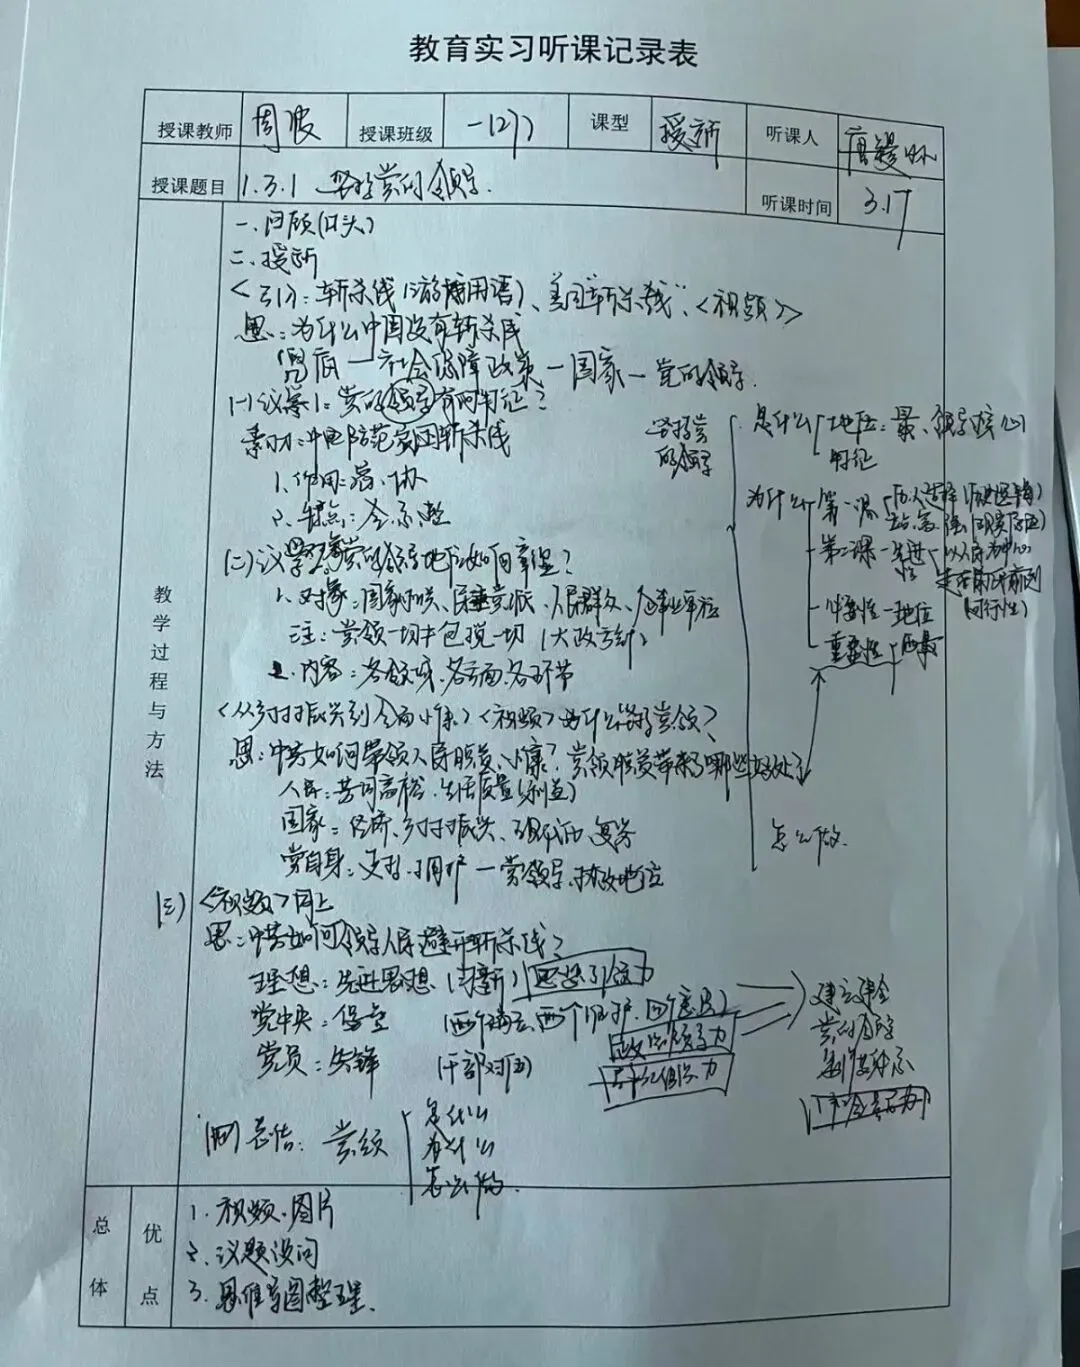 教育实习听课记录表
授课教师 周波 授课班级 一(27) 课型 授新 听课人
授课题目 1.3.1 坚持党的领导. 听课时间 3.17
教学过程与方法
一、回顾(口头)
二、授新
<引>: 斩杀线(游戏用语)、美国"斩杀线"<视频>
思: 为什么中国没有斩杀线
兜底—社会保障政策—国家—党的领导.
(一)议学1: 党的领导有何特征?
素材: 中国防范美国斩杀线
1、作用: 总、协
2、特点: 全、系、整
(二)议学2: 党的领导地位如何掌握?
1、对象: 国家机关、民主党派、人民群众、企事业单位
注: 党领一切≠包揽一切 (大政方针)
2、内容: 各领域、各方面、各环节
<从乡村振兴到全面小康><视频>为什么坚持党领?
思: 中共如何带领人民脱贫、小康? 党领脱贫带来了哪些好处?
人民: 共同富裕、生活质量(利益)
国家: 经济、乡村振兴、现代化、复兴
党自身: 支持、拥护—党领导、执政地位
(三) <视频>同上
思: 中共如何领导人民避开斩杀线?
理想: 先进思想 (习新) 思想引领力
党中央: 保坚 (两个确立、两个维护、四个意识) 政治领导力
党员: 先锋 (干部对口) 群众组织力
建立健全
党的领导
制度体系
(四) 总结: 党领
是什么
为什么
怎么做.
坚持党的领导
是什么 地位: 最、领导核心
特征
为什么 第一课
第二课—先进性—以人民为中心
走在前所前列
必要性—地位
重要性—四最
怎么做.
总体 优点
1. 视频、图片
2、议题设问
3、思维导图整理.